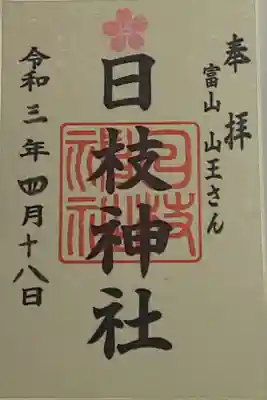 奉拝
富山 山王さん
日枝神社
令和三年四月十八日
日枝神社